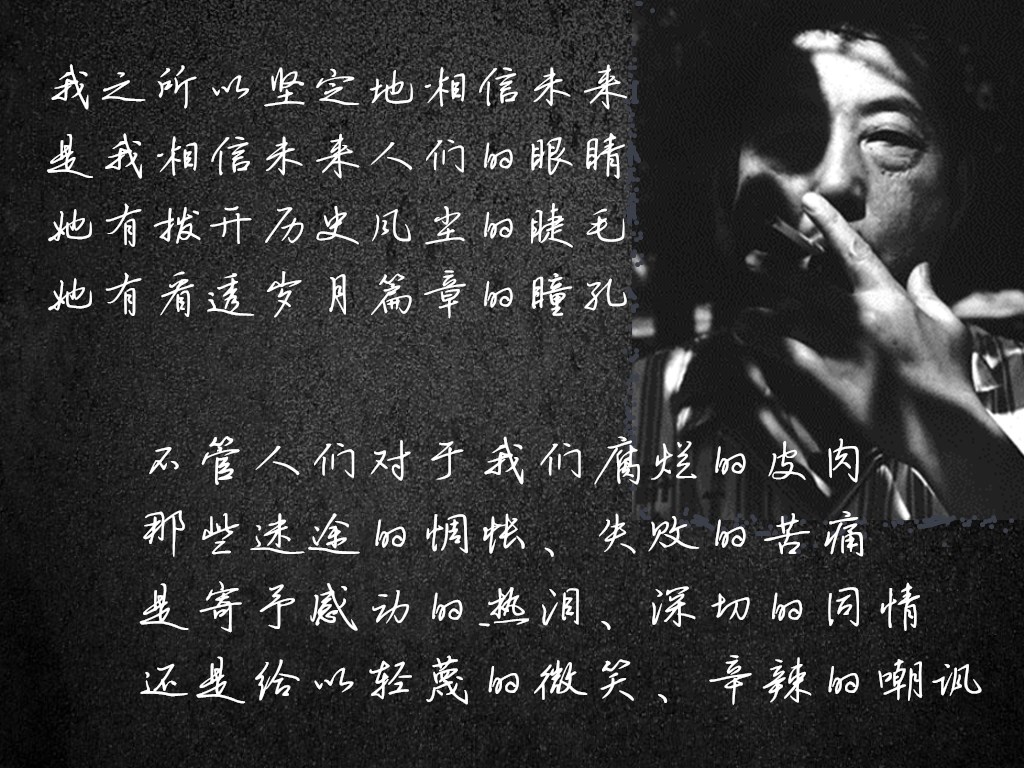 我之所以坚定地相信未来
是我相信未来人们的眼睛
她有拨开历史风尘的睫毛
她有看透岁月篇章的瞳孔
不管人们对于我们腐烂的皮肉
那些迷途的惆怅、失败的苦痛
是寄予感动的热泪、深切的同情
还是给以轻蔑的微笑、辛辣的嘲讽